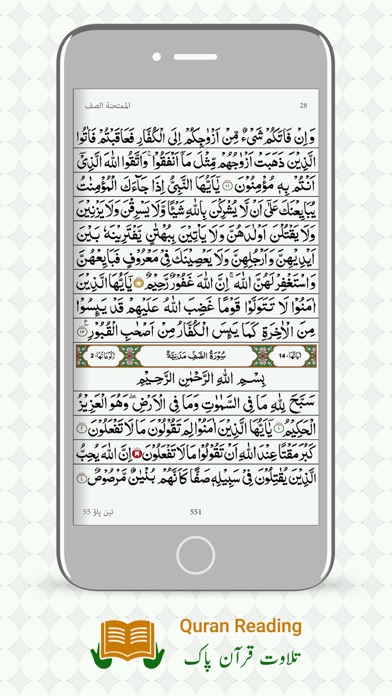 الممتحنة الصف 28
وَاِنْ فَاتَكُمْ شَیْءٌ مِّنْ اَزْوَاجِكُمْ اِلَی الْكُفَّارِ فَعَاقَبْتُمْ فَاٰتُوا
الَّذِیْنَ ذَهَبَتْ اَزْوَاجُهُمْ مِّثْلَ مَاۤ اَنْفَقُوْا ؕ وَاتَّقُوا اللّٰهَ الَّذِیْۤ
اَنْتُمْ بِهٖ مُؤْمِنُوْنَ ۱۱ یٰۤاَیُّهَا النَّبِیُّ اِذَا جَآءَكَ الْمُؤْمِنٰتُ
یُبَایِعْنَكَ عَلٰۤی اَنْ لَّا یُشْرِكْنَ بِاللّٰهِ شَیْـًٔا وَّلَا یَسْرِقْنَ وَلَا یَزْنِیْنَ
وَلَا یَقْتُلْنَ اَوْلَادَهُنَّ وَلَا یَاْتِیْنَ بِبُهْتَانٍ یَّفْتَرِیْنَهٗ بَیْنَ
اَیْدِیْهِنَّ وَاَرْجُلِهِنَّ وَلَا یَعْصِیْنَكَ فِیْ مَعْرُوْفٍ فَبَایِعْهُنَّ
وَاسْتَغْفِرْ لَهُنَّ اللّٰهَ ؕ اِنَّ اللّٰهَ غَفُوْرٌ رَّحِیْمٌ یٰۤاَیُّهَا الَّذِیْنَ
اٰمَنُوْا لَا تَتَوَلَّوْا قَوْمًا غَضِبَ اللّٰهُ عَلَیْهِمْ قَدْ یَىِٕسُوْا
مِنَ الْاٰخِرَةِ كَمَا یَىِٕسَ الْكُفَّارُ مِنْ اَصْحٰبِ الْقُبُوْرِ ۱۳
اٰیَاتُهَا 14 سُوْرَةُ الصَّفِّ مَدَنِیَّةٌ رُكُوْعَاتُهَا 2
بِسْمِ اللّٰهِ الرَّحْمٰنِ الرَّحِیْمِ
سَبَّحَ لِلّٰهِ مَا فِی السَّمٰوٰتِ وَمَا فِی الْاَرْضِ ۚ وَهُوَ الْعَزِیْزُ
الْحَكِیْمُ ۱ یٰۤاَیُّهَا الَّذِیْنَ اٰمَنُوْا لِمَ تَقُوْلُوْنَ مَا لَا تَفْعَلُوْنَ ۲
كَبُرَ مَقْتًا عِنْدَ اللّٰهِ اَنْ تَقُوْلُوْا مَا لَا تَفْعَلُوْنَ اِنَّ اللّٰهَ یُحِبُّ
الَّذِیْنَ یُقَاتِلُوْنَ فِیْ سَبِیْلِهٖ صَفًّا كَاَنَّهُمْ بُنْیَانٌ مَّرْصُوْصٌ ۴
تین پاؤ 55 551
Quran Reading
تلاوت قرآن پاک